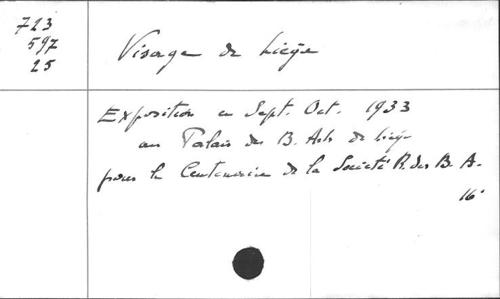 723
597
25
Visage de Liège
Exposition en Sept. Oct. 1933
au Palais des B. Arts de Liège
pour le Centenaire de la Société R. des B. A.
16°